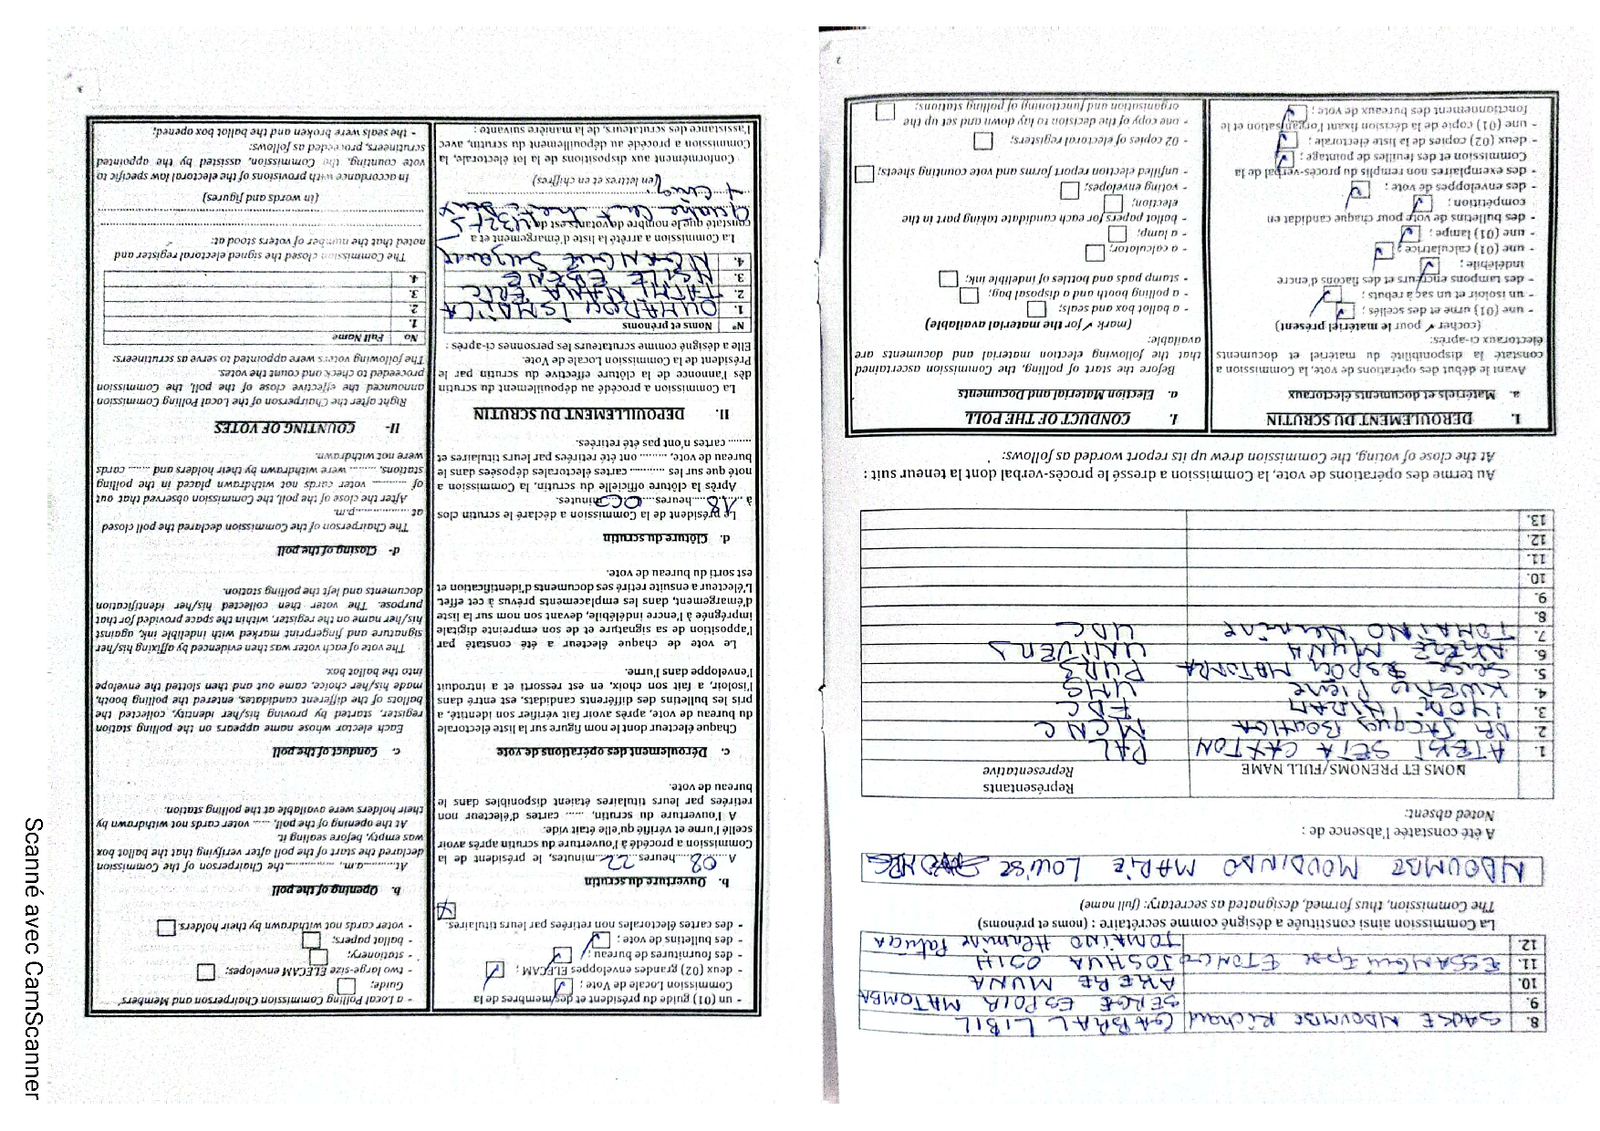 8. SACKE NDOUMBE Richard CABRAL LIBII
9. SERGE ESPOIR MATOMBA
10. AKERE MUNA
11. ESSANGUI Epse ETONGO JOSHUA OSIH
12. TOMAINO Hermine Patricia
La Commission ainsi constituée a désigné comme secrétaire : (noms et prénoms)
The Commission, thus formed, designated as secretary: (full name)
NDOUMBE MOUDINDO MARIE LOUISE
A été constatée l'absence de :
Noted absent:
NOMS ET PRENOMS/FULL NAME
Représentants
Representative
1. ATEKI SETA CAXTON PAL
2. DR JACQUES BOUHGA MCNC
3. IYODI HIRAM FDC
4. KWEMO Pierre UMS
5. SERGE ESPOIR MATOMBA PURS
6. AKERE MUNA UNIVERS
7. TOMAINO Hermine UDC
8.
9.
10.
11.
12.
13.
Au terme des opérations de vote, la Commission a dressé le procès-verbal dont la teneur suit :
At the close of voting, the Commission drew up its report worded as follows:
I. DEROULEMENT DU SCRUTIN
a. Matériels et documents électoraux
Avant le début des opérations de vote, la Commission a
constaté la disponibilité du matériel et documents
électoraux ci-après:
(cocher ✓ pour le matériel présent)
- une (01) urne et des scellés ;
- un isoloir et un sac à rebuts ;
- des tampons encreurs et des flacons d'encre
indélébile ;
- une (01) calculatrice ;
- une (01) lampe ;
- des bulletins de vote pour chaque candidat en
compétition ;
- des enveloppes de vote ;
- des exemplaires non remplis du procès-verbal de la
Commission et des feuilles de pointage ;
- deux (02) copies de la liste électorale ;
- une (01) copie de la décision fixant l'organisation et le
fonctionnement des bureaux de vote ;
I. CONDUCT OF THE POLL
a. Election Material and Documents
Before the start of polling, the Commission ascertained
that the following election material and documents are
available:
(mark ✓ for the material available)
- a ballot box and seals;
- a polling booth and a disposal bag;
- stamp pads and bottles of indelible ink;
- a calculator;
- a lamp;
- ballot papers for each candidate taking part in the
election;
- voting envelopes;
- unfilled election report forms and vote counting sheets;
- 02 copies of electoral registers;
- one copy of the decision to lay down and set up the
organisation and functioning of polling stations;
2
- un (01) guide du président et des membres de la
Commission Locale de Vote ;
- deux (02) grandes enveloppes ELECAM ;
- des fournitures de bureau ;
- des bulletins de vote ;
- des cartes électorales non retirées par leurs titulaires.
b. Ouverture du scrutin
A 08 heures 22 minutes, le président de la
Commission a procédé à l'ouverture du scrutin après avoir
scellé l'urne et vérifié qu'elle était vide.
A l'ouverture du scrutin, ...... cartes d'électeur non
retirées par leurs titulaires étaient disponibles dans le
bureau de vote.
c. Déroulement des opérations de vote
Chaque électeur dont le nom figure sur la liste électorale
du bureau de vote, après avoir fait vérifier son identité, a
pris les bulletins des différents candidats, est entré dans
l'isoloir, a fait son choix, en est ressorti et a introduit
l'enveloppe dans l'urne.
Le vote de chaque électeur a été constaté par
l'apposition de sa signature et de son empreinte digitale
imprégnée à l'encre indélébile, devant son nom sur la liste
d'émargement, dans les emplacements prévus à cet effet.
L'électeur a ensuite retiré ses documents d'identification et
est sorti du bureau de vote.
d. Clôture du scrutin
Le président de la Commission a déclaré le scrutin clos
à 18 heures 00 minutes.
Après la clôture officielle du scrutin, la Commission a
noté que sur les .......... cartes électorales déposées dans le
bureau de vote, ........ ont été retirées par leurs titulaires et
........ cartes n'ont pas été retirées.
II. DEPOUILLEMENT DU SCRUTIN
La Commission a procédé au dépouillement du scrutin
dès l'annonce de la clôture effective du scrutin par le
Président de la Commission Locale de Vote.
Elle a désigné comme scrutateurs les personnes ci-après :
N° Noms et prénoms
1. OUMAROU ISMAÏLA
2. ERIC
3. EBENE
4. NGANGUE Suzanne
La Commission a arrêté la liste d'émargement et a
constaté que le nombre de votants est de
(en lettres et en chiffres)
Conformément aux dispositions de la loi électorale, la
Commission a procédé au dépouillement du scrutin, avec
l'assistance des scrutateurs, de la manière suivante :
- a Local Polling Commission Chairperson and Members'
Guide;
- two large-size ELECAM envelopes;
- stationery;
- ballot papers;
- voter cards not withdrawn by their holders.
b. Opening of the poll
At..........a.m. .............the Chairperson of the Commission
declared the start of the poll after verifying that the ballot box
was empty, before sealing it.
At the opening of the poll, ..... voter cards not withdrawn by
their holders were available at the polling station.
c. Conduct of the poll
Each elector whose name appears on the polling station
register, started by proving his/her identity, collected the
ballots of the different candidates, entered the polling booth,
made his/her choice, came out and then slotted the envelope
into the ballot box
The vote of each voter was then evidenced by affixing his/her
signature and fingerprint marked with indelible ink, against
his/her name on the register, within the space provided for that
purpose. The voter then collected his/her identification
documents and left the polling station.
d- Closing of the poll
The Chairperson of the Commission declared the poll closed
at ................p.m.
After the close of the poll, the Commission observed that out
of ......... voter cards not withdrawn placed in the polling
stations, ........ were withdrawn by their holders and ...... cards
were not withdrawn.
II- COUNTING OF VOTES
Right after the Chairperson of the Local Polling Commission
announced the effective close of the poll, the Commission
proceeded to check and count the votes.
The following voters were appointed to serve as scrutineers:
No Full Name
1.
2.
3.
4.
The Commission closed the signed electoral register and
noted that the number of voters stood at:
(in words and figures)
In accordance with provisions of the electoral law specific to
vote counting, the Commission, assisted by the appointed
scrutineers, proceeded as follows:
- the seals were broken and the ballot box opened;
3
Scanné avec CamScanner